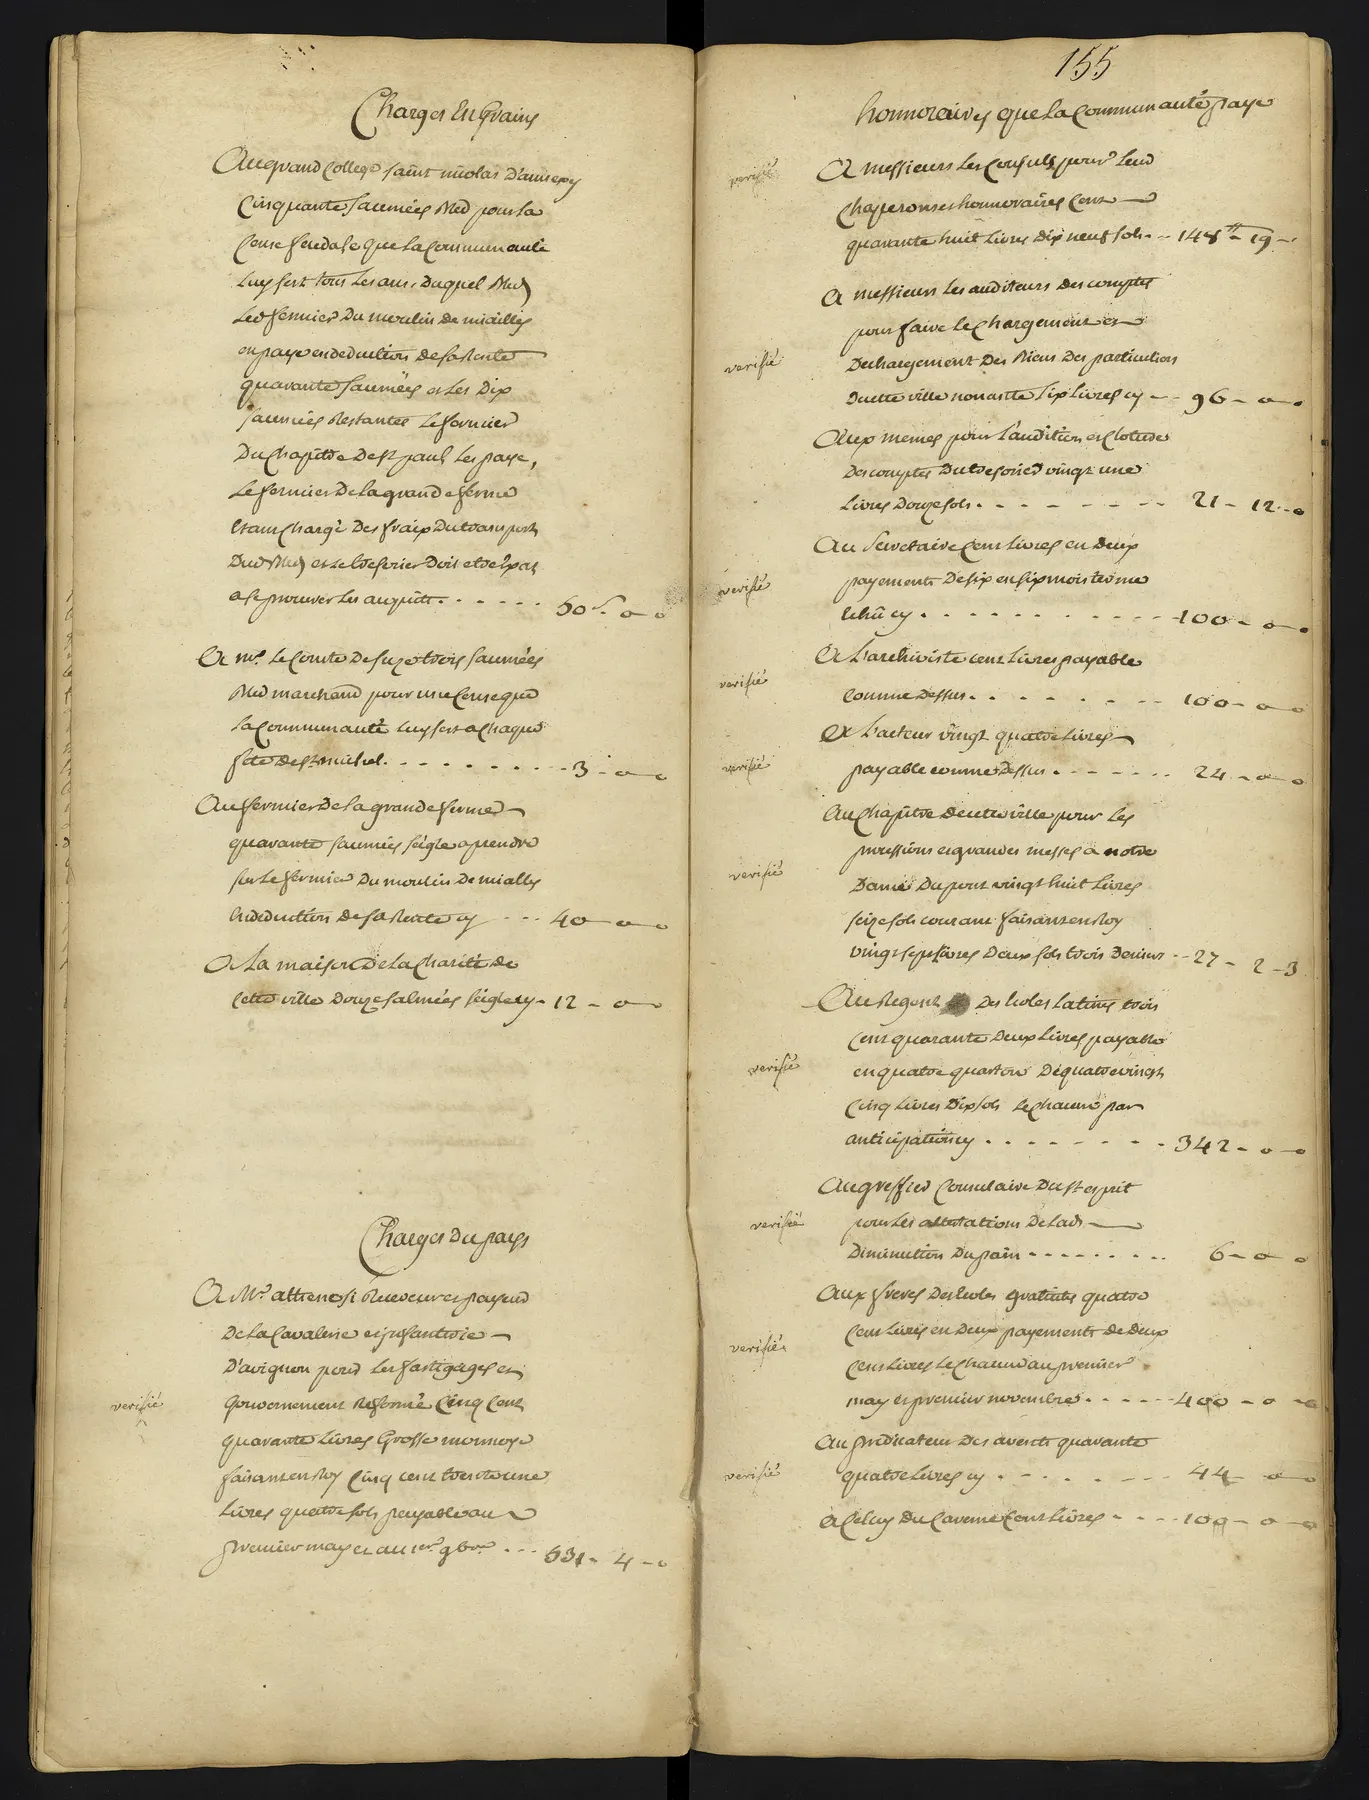 Charges En Grains
Au grand College saint nicolas D'annecy
Cinquante saumées bled pour la
Cense feodale que La Communauté
luy fert tous Les ans, Duquel bled
Led fermier Du moulin de mialles
en paye en deduction de sa Rente
quarante saumées et Les Dix
saumées Restantes Le fermier
Du Chapitre De st paul Les paye,
Le fermier De La grande ferme
Etant Chargé Des fraix Du transport
Dud bled et Le tresorier Doit
a se procurer Les acquits . . . . . . 50 s. - o - o
A mr. Le Comte De suze trois saumées
bled marchand pour une Cense que
La Communauté luy fert a Chaque
fete De st. michel. - - - - - - - - - 3 - o - o
Au fermier De La grande ferme
quarante saumées seigle a prendre
sur Le fermier Du moulin De mialles
En deduction de sa Rente cy - - - 40 - o - o
A La maison De La Charité de
Cette ville Douze salmées seigle cy - 12 - o - o
Charges Du pays
A Mr. attenosi Receveur et payeur
De La Cavalerie et jnfanterie
D'avignon pour Les fastigages et
Gouvernement Reformé Cinq Cent
verifié
quarante Livres Grosse monnoye
faisant en Roy Cinq cent trente une
Livres quatre sols payable au
premier may et au 1er. 9bre. - - - 531 - 4 - o
155
honnoraires que La Communauté paye
verifié
A messieurs Les Consuls pour Leur
Chaperons et honnoraires Cent
quarante huit Livres Dix neuf sols - - 148 tt - 19 -
A messieurs Les auditeurs Des comptes
pour faire Le Chargement et
verifié
Dechargement Des Biens Des particuliers
Ducette ville nonante six Livres cy - - 96 - o - o
Aux memes pour L'audition et Cloture
Des comptes Du tresorier vingt une
Livres Douze sols . - - - - - - - 21 - 12 - o
Au Secretaire Cent Livres en Deux
verifié
payements De six en six mois terme
Echû cy . . . . . . . . . . . - 100 - o - o
A L'archiviste cent Livres payable
verifié
Comme Dessus . . . . . . . 100 - o - o
A L'acteur vingt quatre Livres
verifié
payable comme Dessus - - - - - - - 24 - o - o
Au Chapitre De cette ville pour Les
processions et grandes messes a notre
verifié
Dame Du pont vingt huit Livres
seize sols courant faisant en Roy
vingt sept Livres Deux sols trois Deniers - - 27 - 2 - 3
Au Regent Des Ecoles Latines trois
Cent quarante Deux Livres payable
verifié
en quatre quartons De quatre vingt
Cinq Livres Dix sols Le Chacun par
anticipation cy . . . . . . . . . 342 - o - o
Au greffier Consulaire Du st esprit
verifié
pour Les attestations De Lad
Diminution Du pain - - - - - - - - 6 - o - o
Aux freres Des Ecoles gratuites quatre
Cent Livres en Deux payements de Deux
verifié
Cent Livres Le Chacun au premier
may et premier novembre - - - - - - 400 - o - o
Au predicateur Des avents quarante
verifié
quatre Livres cy - - - - - - - 44 - o - o
a Celuy Du Careme Cent Livres - - - - 100 - o - o